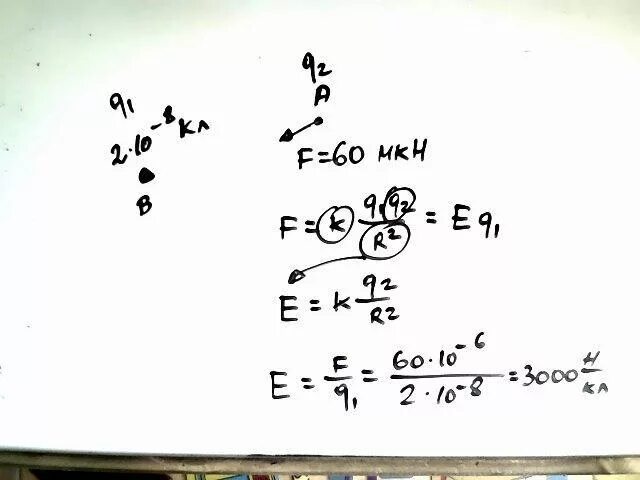 q₁
2·10⁻⁸ Кл
В
q₂
А
F=60 мкН
F = k q₁q₂/R² = E q₁
E = k q₂/R²
E = F/q₁ = 60·10⁻⁶/2·10⁻⁸ = 3000 Н/Кл